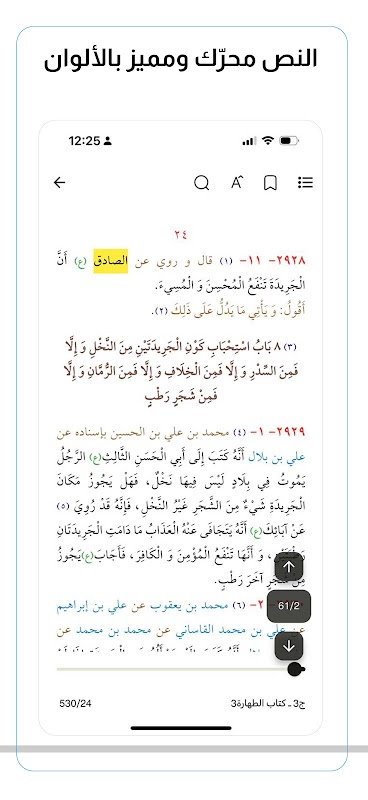 النص محرّك ومميز بالألوان
12:25
٢٤
٢٩٢٨- ١١- (١) قال و روي عن الصادق (ع) أَنَّ
الْجَرِيدَةَ تَنْفَعُ الْمُحْسِنَ وَ الْمُسِيءَ.
أَقُولُ: وَ يَأْتِي مَا يَدُلُّ عَلَى ذَلِكَ (٢).
(٣) ٨ بَابُ اسْتِحْبَابِ كَوْنِ الْجَرِيدَتَيْنِ مِنَ النَّخْلِ وَ إِلَّا
فَمِنَ السِّدْرِ وَ إِلَّا فَمِنَ الْخِلَافِ وَ إِلَّا فَمِنَ الرُّمَّانِ وَ إِلَّا
فَمِنْ شَجَرٍ رَطْبٍ
٢٩٢٩- ١- (٤) محمد بن علي بن الحسين بإسناده عن
علي بن بلال أَنَّهُ كَتَبَ إِلَى أَبِي الْحَسَنِ الثَّالِثِ(ع) الرَّجُلُ
يَمُوتُ فِي بِلَادٍ لَيْسَ فِيهَا نَخْلٌ، فَهَلْ يَجُوزُ مَكَانَ
الْجَرِيدَةِ شَيْءٌ مِنَ الشَّجَرِ غَيْرُ النَّخْلِ، فَإِنَّهُ قَدْ رُوِيَ (٥)
عَنْ آبَائِكَ(ع) أَنَّهُ يَتَجَافَى عَنْهُ الْعَذَابُ مَا دَامَتِ الْجَرِيدَتَانِ
وَ أَنَّهَا تَنْفَعُ الْمُؤْمِنَ وَ الْكَافِرَ، فَأَجَابَ(ع)يَجُوزُ
مِنْ شَجَرٍ آخَرَ رَطْبٍ.
61/2
٢- (٦) محمد بن يعقوب عن علي بن إبراهيم
عن علي بن محمد القاساني عن محمد بن محمد عن
ج3 ـ كتاب الطهارة3
530/24